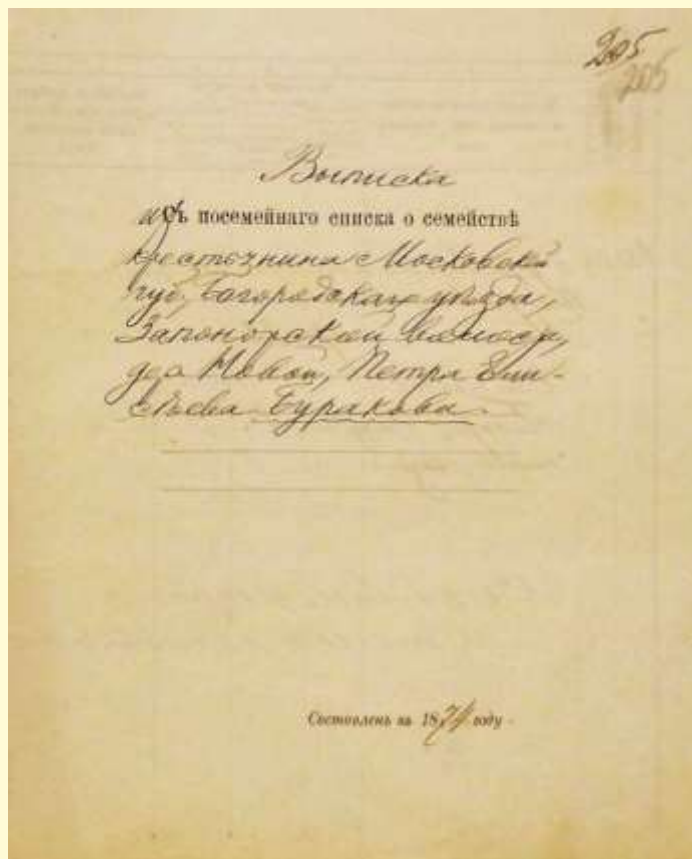 205
205
Выписка
изъ посемейнаго списка о семействѣ
крестьянина Московской
губ., Богородскаго уѣзда,
Запонорской волости,
дер. Новой, Петра Ели-
сѣева Буракова
Составленъ въ 1874 году